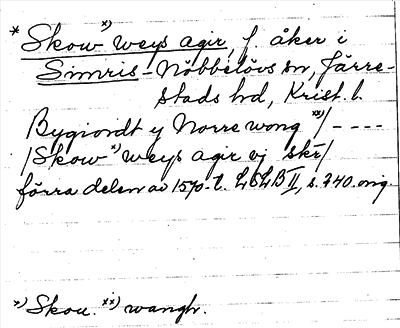 * Skow x) weys agir, f. åker i
Simris-Nöbbelövs sn, Järre-
stads hd, Krist. l.
Bygiondt y Norre wong xx) /----
/Skow x) weys agir vj skr/
förra delen av 1570-t. LSLB II, s. 240. orig.
x) Skou. xx) wangh.